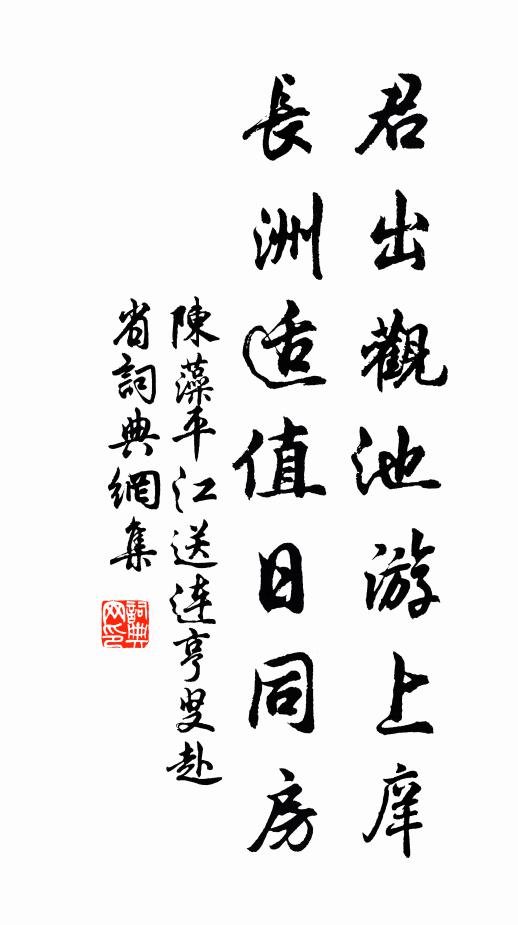 君出觀池游上庠
長洲适值日同房
陳藻平江送連亨叟赴
省詞典網集
詞典网印